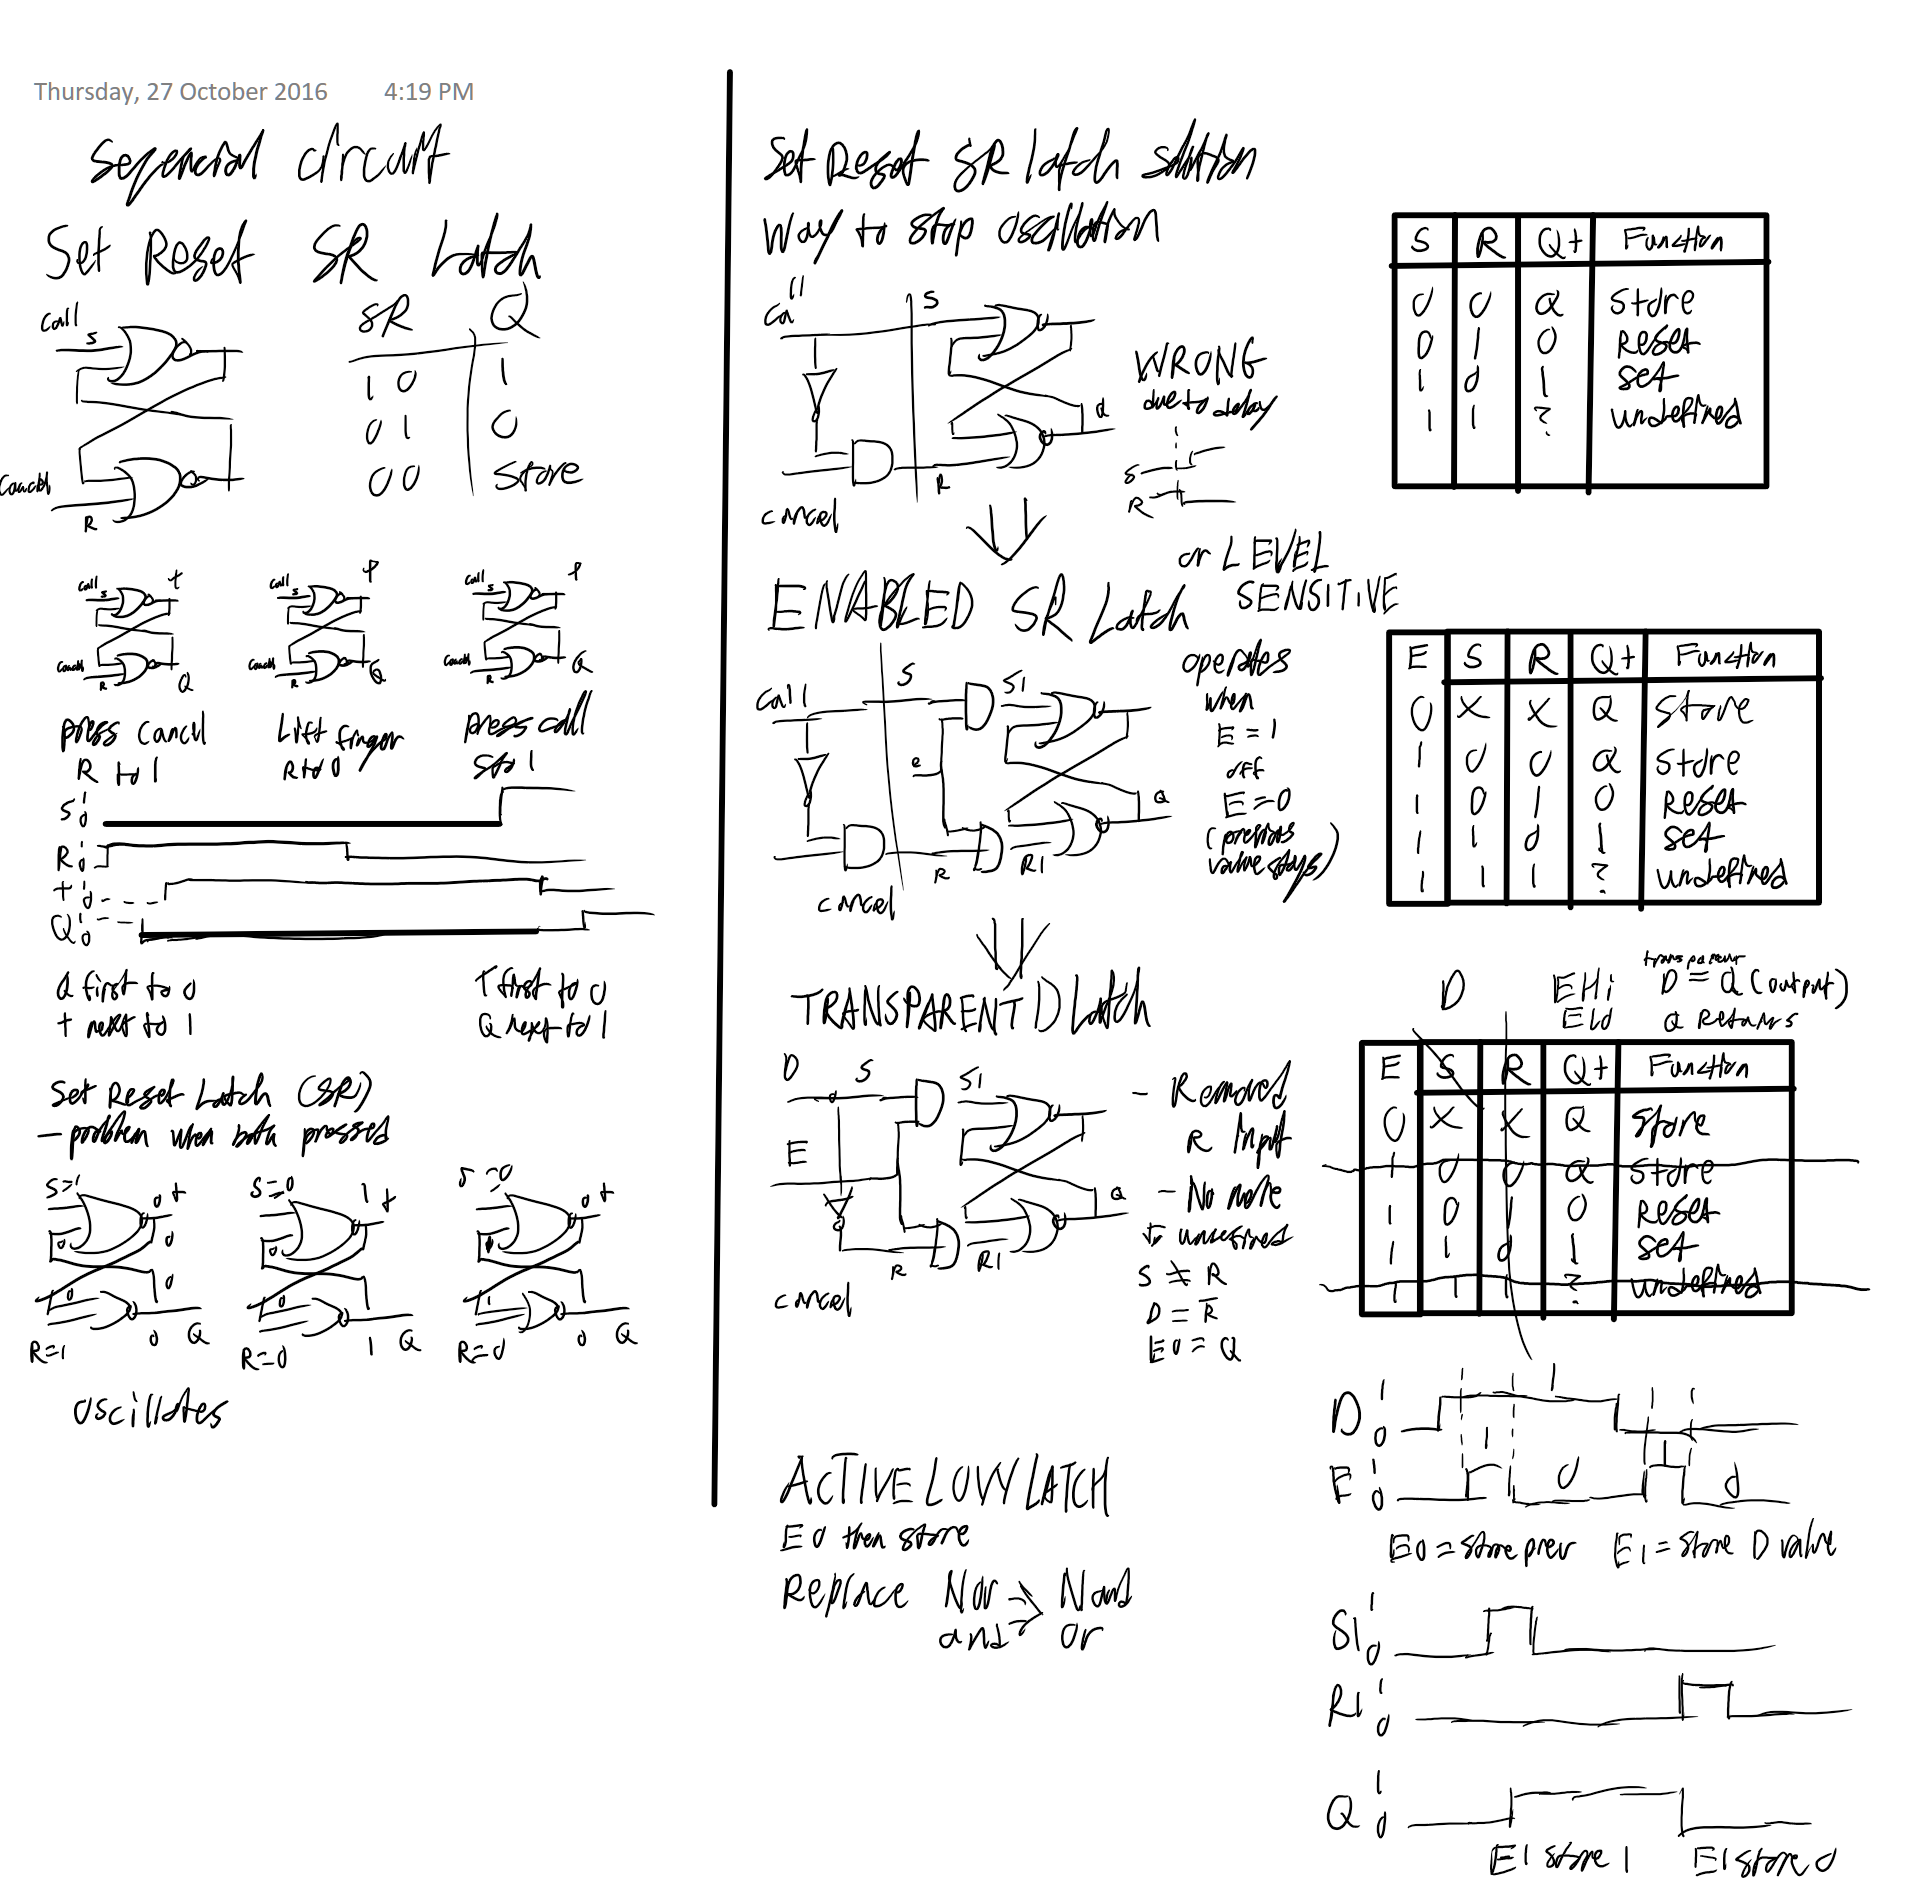 Thursday, 27 October 2016 4:19 PM
Seqencial circuit
Set Reset SR Latch
Call S
Cancel R
SR Q
1 0 1
0 1 0
0 0 Store
Call S t
Cancel R Q
Call S t
Cancel R Q
Call S t
Cancel R Q
press cancel
R to 1
Lift finger
R to 0
press call
S to 1
S 1 0
R 1 0
t 1 0
Q 1 0
Q first to 0
t next to 1
T first to 0
Q next to 1
Set Reset Latch (SR)
- problem when both pressed
S=1 0 t
0 0
0 0
R=1 0 Q
S=0 1 t
0
0
R=0 1 Q
S=0 0 t
1
1
R=0 0 Q
oscillates
Set Reset SR latch solution
Way to stop oscillation
Call S
R Q
cancel
WRONG
due to delay
S
R
S R Q+ Function
0 0 Q Store
0 1 0 Reset
1 0 1 set
1 1 ? undefined
ENABLED SR Latch
or LEVEL
SENSITIVE
Call S S1
e
R R1 Q
cancel
operates
when
E=1
off
E=0
(previous
value stays)
E S R Q+ Function
0 X X Q Store
1 0 0 Q Store
1 0 1 0 Reset
1 1 0 1 set
1 1 1 ? undefined
TRANSPARENT D Latch
D S S1
E
R R1 Q
cancel
- Removed
R Input
- No more
undefined
S ≠ R
D = R̅
E0 = Q
D
EHi transparent D = Q (output)
Elo Q Retains
E S R Q+ Function
0 X X Q Store
1 0 0 Q Store
1 0 1 0 Reset
1 1 0 1 set
1 1 1 ? undefined
D 1 0 1
E 1 0 1 0 1 0
E0 = store prev E1 = store D value
S1 1 0
R1 1 0
Q 1 0
E1 store 1 E1 store 0
ACTIVE LOW LATCH
E0 then store
Replace Nor => Nand
and => or